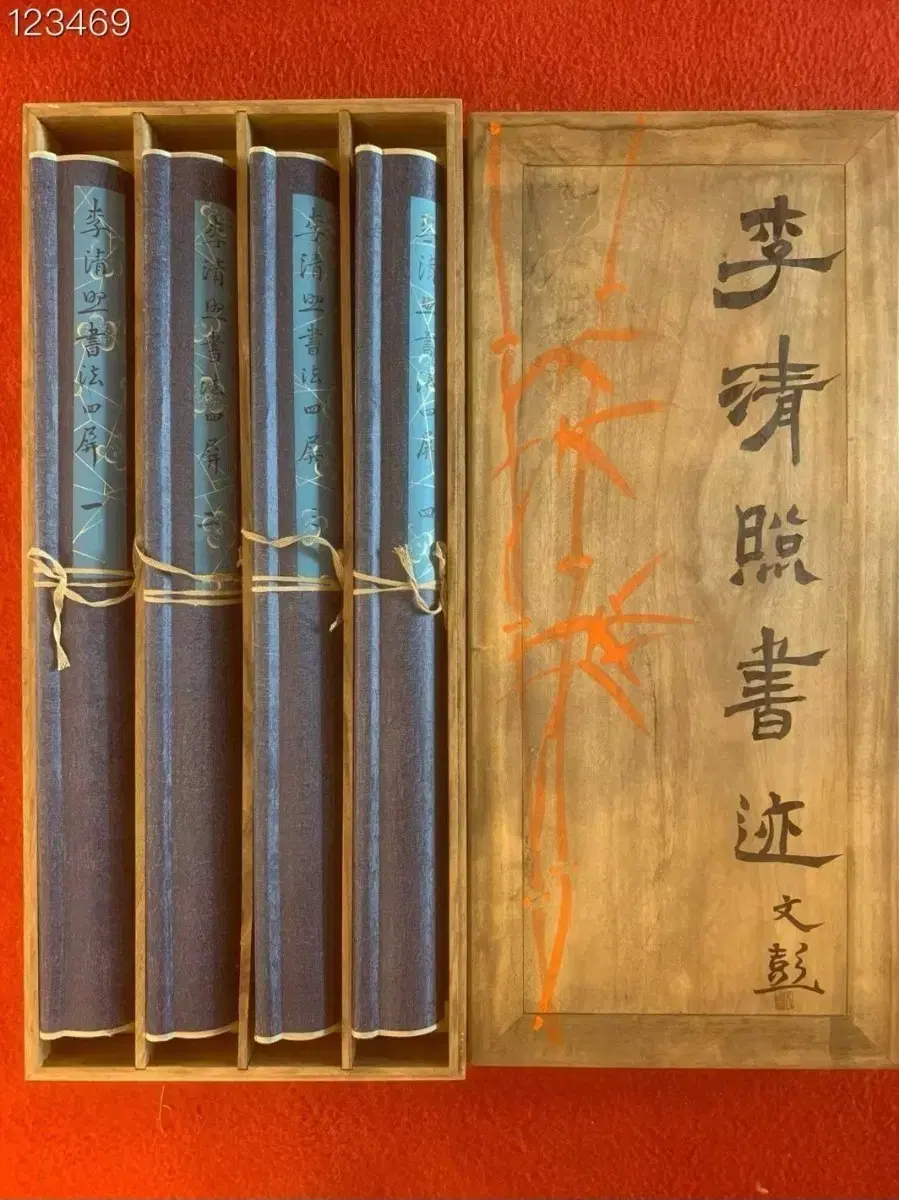 123469
李清照書法四屏 一
李清照書法四屏 二
李清照書法四屏 三
李清照書法四屏 四
李清照書迹
文彭